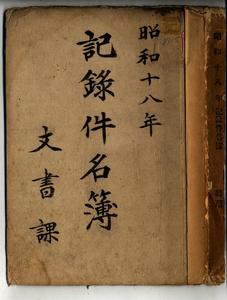 昭和十八年
記錄件名簿
文書課
昭和十八年